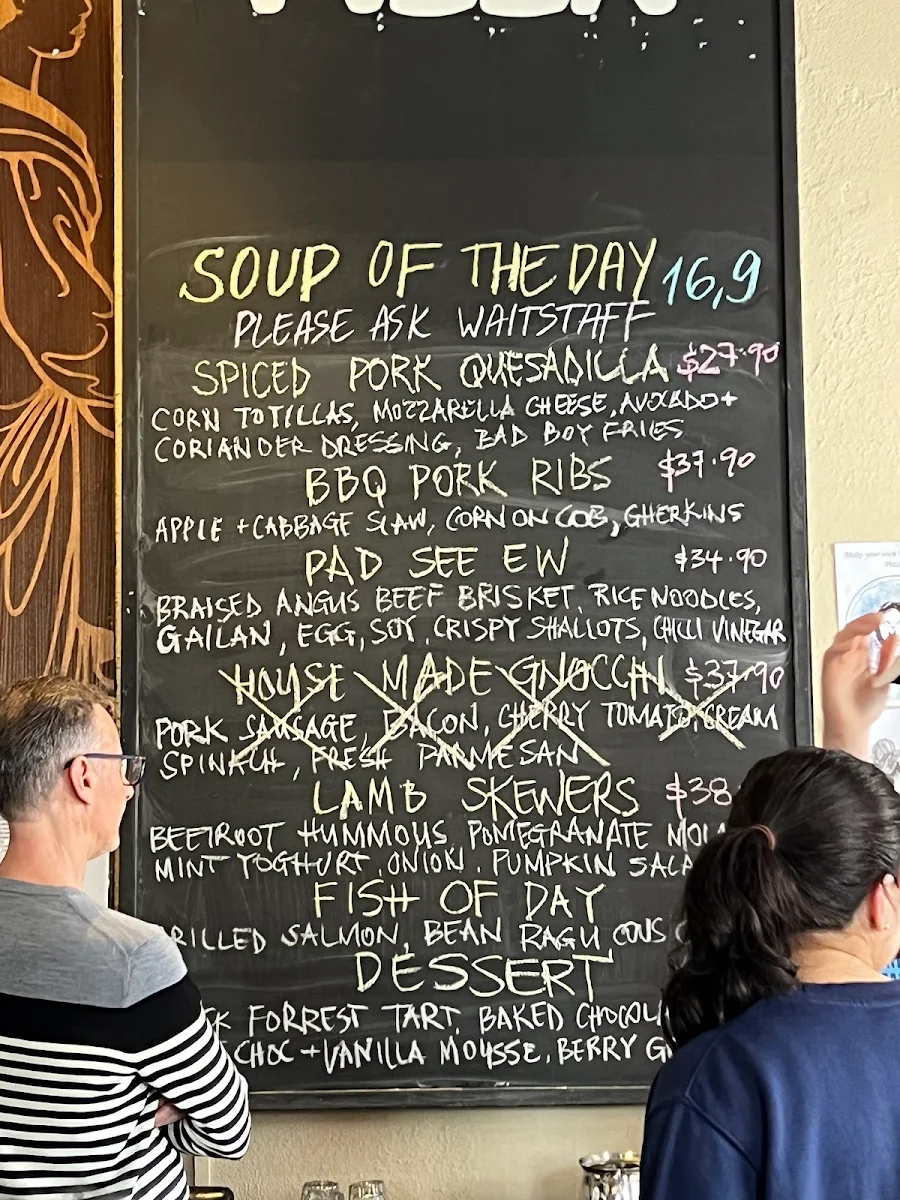 SOUP OF THE DAY 16,9
PLEASE ASK WAITSTAFF
SPICED PORK QUESADILLA $27.90
CORN TOTILLAS, MOZZARELLA CHEESE, AVOCADO +
CORIANDER DRESSING, BAD BOY FRIES
BBQ PORK RIBS $37.90
APPLE + CABBAGE SLAW, CORN ON COB, GHERKINS
PAD SEE EW $34.90
BRAISED ANGUS BEEF BRISKET, RICE NOODLES,
GAILAN, EGG, SOY, CRISPY SHALLOTS, CHILLI VINEGAR
HOUSE MADE GNOCCHI $37.90
PORK SAUSAGE, BACON, CHERRY TOMATO, CREAM
SPINACH, FRESH PARMESAN
LAMB SKEWERS $38
BEETROOT HUMMOUS, POMEGRANATE
MINT YOGHURT, ONION, PUMPKIN
FISH OF DAY
SALMON, BEAN RAGU, COUS
DESSERT
FORREST TART, BAKED
CHOC + VANILLA MOUSSE, BERRY